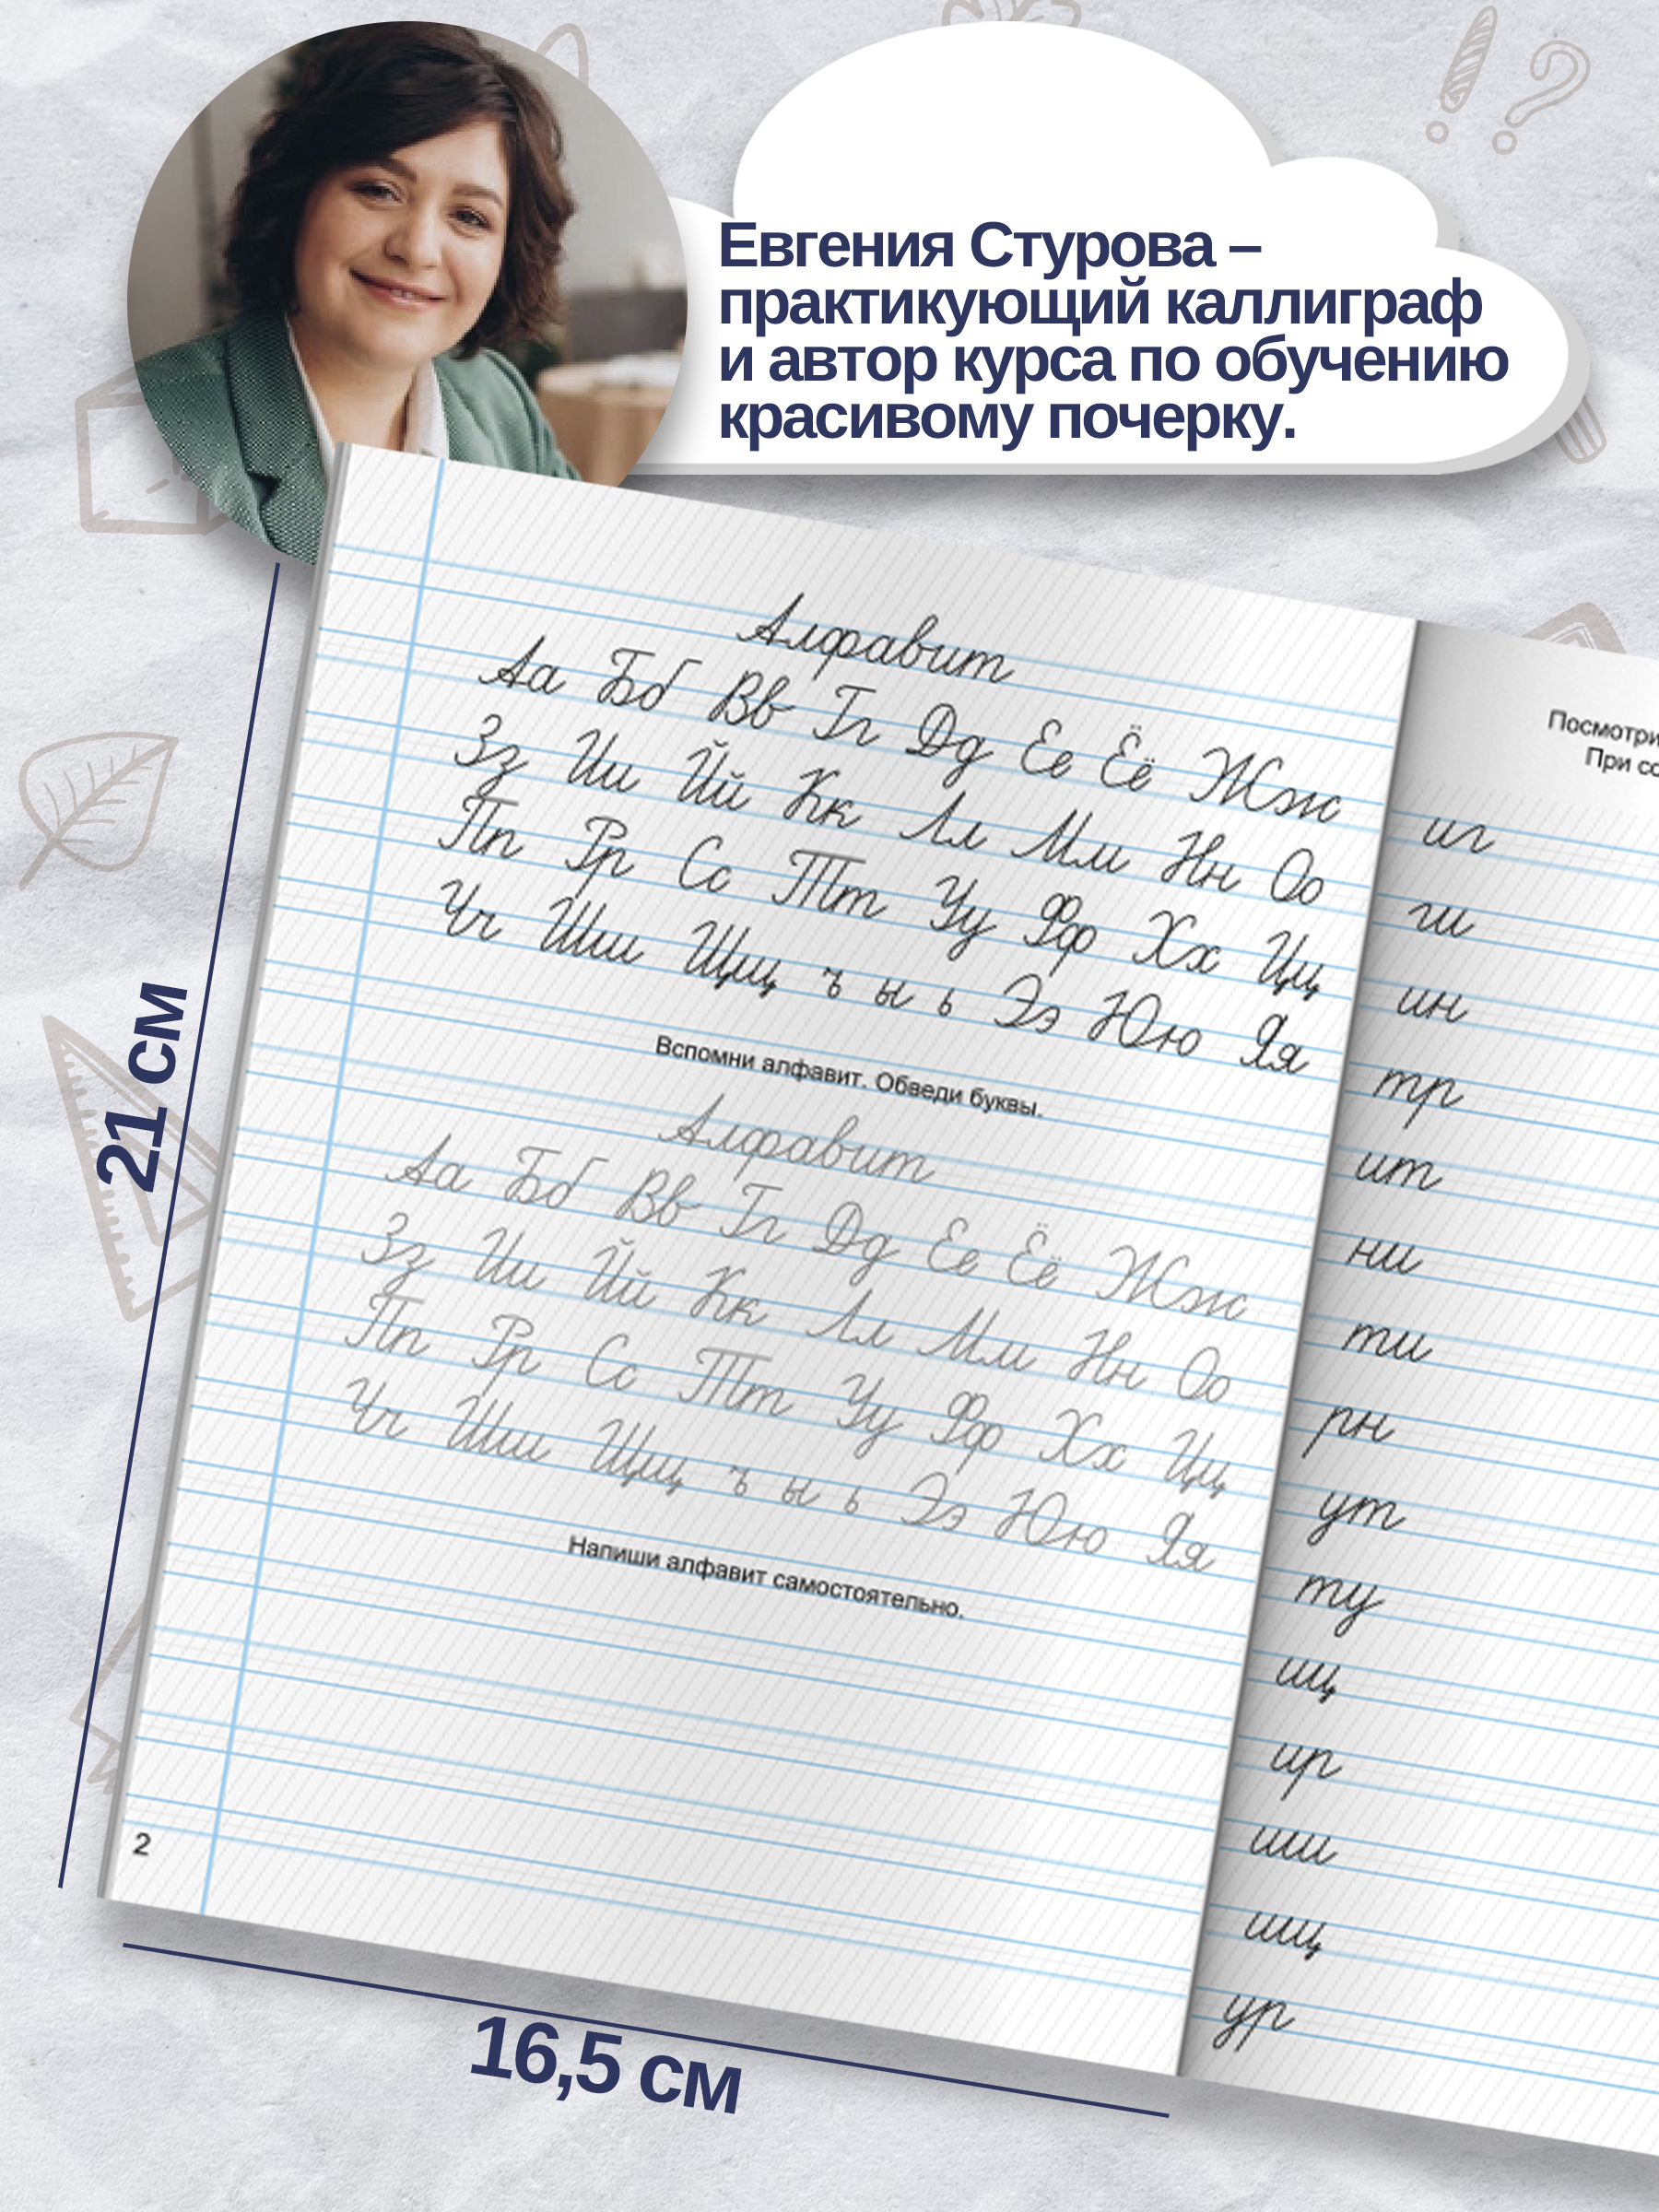 Евгения Стурова –
практикующий каллиграф
и автор курса по обучению
красивому почерку.
Алфавит
Аа Бб Вв Гг Дд Ее Ёё Жж
Зз Ии Йй Кк Лл Мм Нн Оо
Пп Рр Сс Тт Уу Фф Хх Цц
Чч Шш Щщ ъ ы ь Ээ Юю Яя
Вспомни алфавит. Обведи буквы.
Алфавит
Аа Бб Вв Гг Дд Ее Ёё Жж
Зз Ии Йй Кк Лл Мм Нн Оо
Пп Рр Сс Тт Уу Фф Хх Цц
Чч Шш Щщ ъ ы ь Ээ Юю Яя
Напиши алфавит самостоятельно.
2
При
иг
ги
ин
тр
ит
ни
ти
рн
ут
ту
иц
ир
ши
шц
ур
21 см
16,5 см